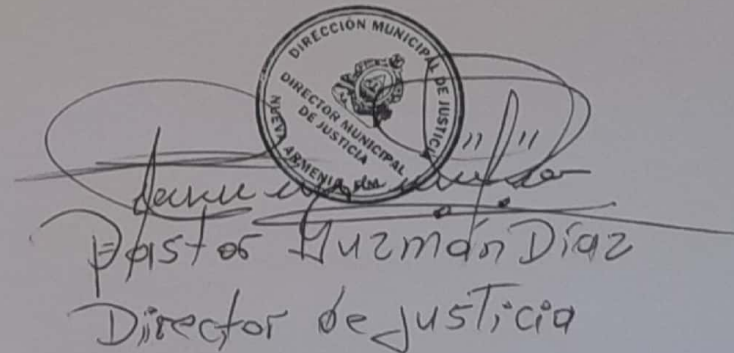 DIRECCIÓN MUNICIPAL DE JUSTICIA
DIRECTOR MUNICIPAL
DE JUSTICIA
NUEVA ARMENIA
Pastor Guzmán Díaz
Director de justicia